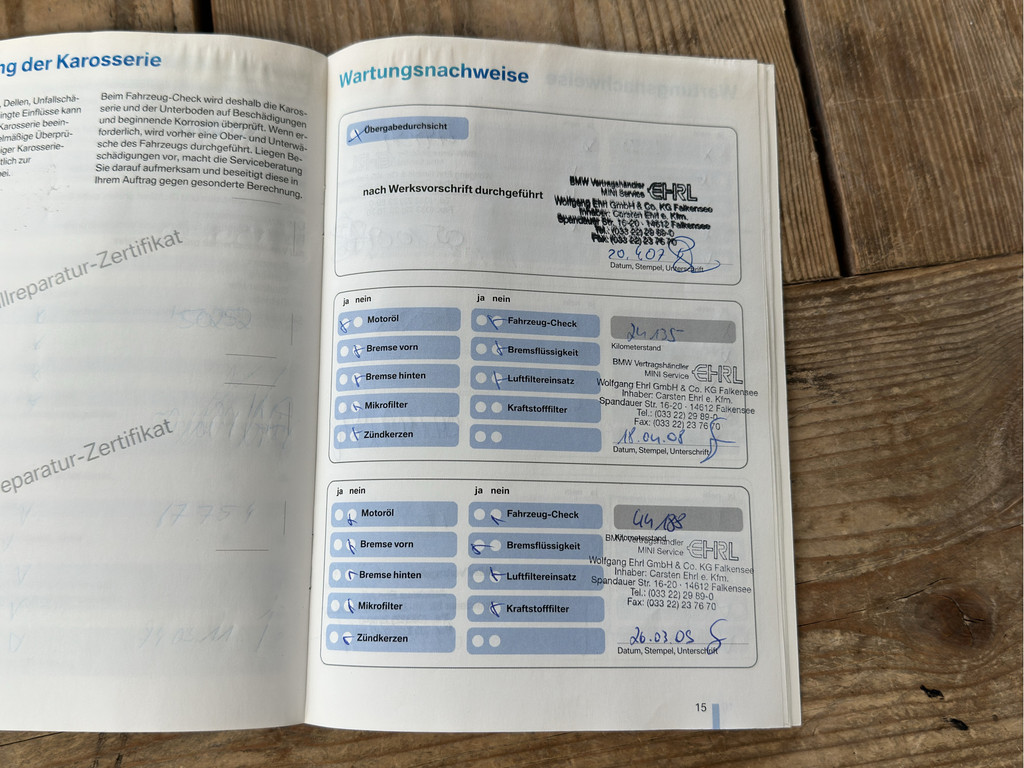 ng der Karosserie
, Dellen, Unfallschä-
ngte Einflüsse kann
Karosserie beein-
elmäßige Überprü-
iger Karosserie-
tlich zur
ei.
Beim Fahrzeug-Check wird deshalb die Karos-
serie und der Unterboden auf Beschädigungen
und beginnende Korrosion überprüft. Wenn er-
forderlich, wird vorher eine Ober- und Unterwä-
sche des Fahrzeugs durchgeführt. Liegen Be-
schädigungen vor, macht die Serviceberatung
Sie darauf aufmerksam und beseitigt diese in
Ihrem Auftrag gegen gesonderte Berechnung.
llreparatur-Zertifikat
eparatur-Zertifikat
Wartungsnachweise
Übergabedurchsicht
nach Werksvorschrift durchgeführt
BMW Vertragshändler
MINI Service EHRL
Wolfgang Ehrl GmbH & Co. KG Falkensee
Inhaber: Carsten Ehrl e. Kfm.
Spandauer Str. 16-20 · 14612 Falkensee
Tel.: (033 22) 29 89-0
Fax: (033 22) 23 76 70
20.4.07
Datum, Stempel, Unterschrift
ja nein
ja nein
Motoröl
Fahrzeug-Check
24 135
Kilometerstand
Bremse vorn
Bremsflüssigkeit
Bremse hinten
Luftfiltereinsatz
Mikrofilter
Kraftstofffilter
Zündkerzen
BMW Vertragshändler
MINI Service EHRL
Wolfgang Ehrl GmbH & Co. KG Falkensee
Inhaber: Carsten Ehrl e. Kfm.
Spandauer Str. 16-20 · 14612 Falkensee
Tel.: (033 22) 29 89-0
Fax: (033 22) 23 76 70
18.04.08
Datum, Stempel, Unterschrift
ja nein
ja nein
Motoröl
Fahrzeug-Check
44 188
Kilometerstand
Bremse vorn
Bremsflüssigkeit
Bremse hinten
Luftfiltereinsatz
Mikrofilter
Kraftstofffilter
Zündkerzen
BMW Vertragshändler
MINI Service EHRL
Wolfgang Ehrl GmbH & Co. KG Falkensee
Inhaber: Carsten Ehrl e. Kfm.
Spandauer Str. 16-20 · 14612 Falkensee
Tel.: (033 22) 29 89-0
Fax: (033 22) 23 76 70
26.03.09
Datum, Stempel, Unterschrift
15